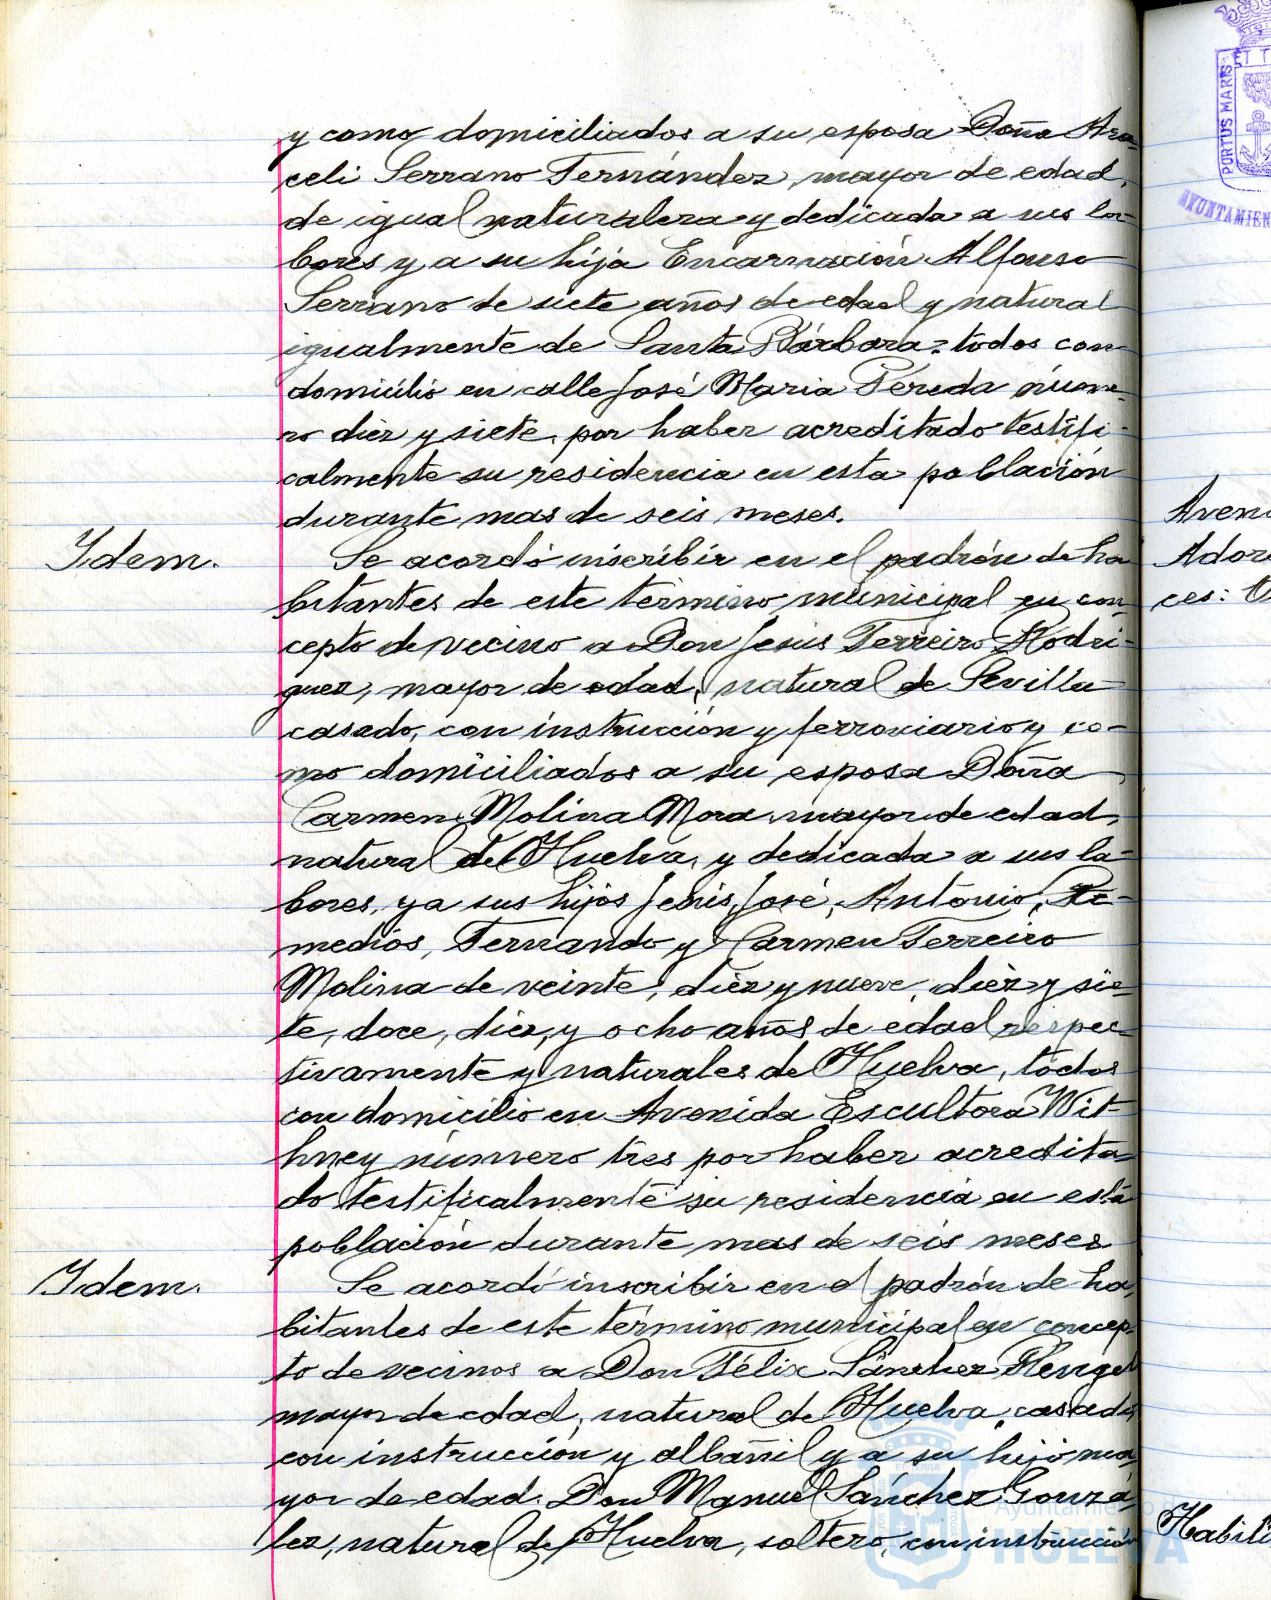 y como domiciliados a su esposa Doña Ara-
celi Serrano Fernández, mayor de edad,
de igual naturaleza y dedicada a sus la-
bores y a su hija Encarnación Alfonso
Serrano de siete años de edad y natural
igualmente de Santa Bárbara, todos con
domicilio en calle José Maria Pereda núme-
ro diez y siete, por haber acreditado testifi-
calmente su residencia en esta población
durante mas de seis meses.
Idem.
Se acordó inscribir en el padrón de ha
bitantes de este término municipal en con
cepto de vecino a Don Jesús Ferreiro Rodri-
guez, mayor de edad, natural de Sevilla
casado, con instrucción y ferroviario y co-
mo domiciliados a su esposa Doña
Carmen Molina Mora, mayor de edad,
natural de Huelva, y dedicada a sus la-
bores, y a sus hijos Jesús, José, Antonio, Re-
medios, Fernando y Carmen Ferreiro
Molina de veinte, diez y nueve, diez y sie-
te, doce, diez, y ocho años de edad respec-
tivamente y naturales de Huelva, todos
con domicilio en Avenida Escultora Wit-
hney número tres por haber acredita
do testificalmente su residencia en esta
población durante mas de seis meses
Idem.
Se acordó inscribir en el padrón de ha
bitantes de este término municipal en concep-
to de vecinos a Don Félix Sánchez Rengel
mayor de edad, natural de Huelva, casado,
con instrucción y albañil y a su hijo ma
yor de edad Don Manuel Sánchez Gonzá
lez, natural de Huelva, soltero, con instrucción
PORTUS MARIS ET T
AYUNTAMIEN
Aven
Ador
ces:
Habili
Ayuntamiento de
HUELVA